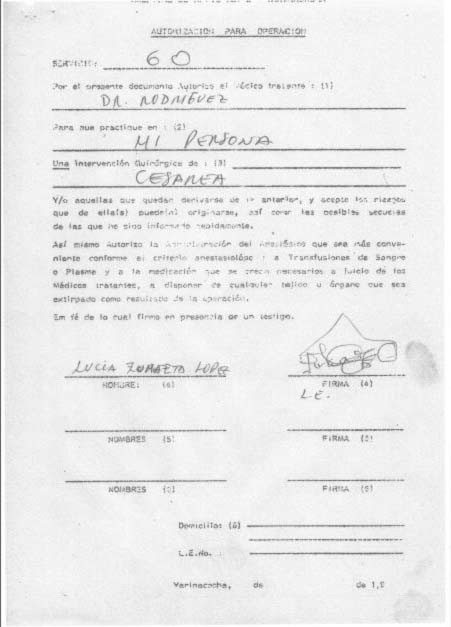 AUTORIZACION PARA OPERACION
SERVICIO: GO
Por el presente documento Autorizo el Médico tratante : (1)
DR. RODRIGUEZ
Para que practique en : (2)
MI PERSONA
Una Intervención Quirúrgica de : (3)
CESAREA
Y/o aquellas que quedan derivarse de la anterior, y acepto los riesgos
que de ella(s) puede(n) originarse, así como las posibles secuelas
de las que he sido informado
Así mismo Autorizo la Administración del Anestésico que sea más conve-
niente conforme el criterio a Transfusiones de Sangre
o Plasma y a la medicación que se crea necesarios a juicio de los
Médicos tratantes, a disponer de cualquier tejido u órgano que sea
extirpado como resultado de la operación.
Em fé de lo cual firmo en presencia de un testigo.
LUCIA LOPEZ
NOMBRE: (4) FIRMA (4)
L.E.
NOMBRES (5) FIRMA (5)
NOMBRES FIRMA (5)
Domicilio: (6)
L.E.No. :
Yarinacocha, de de 1,9